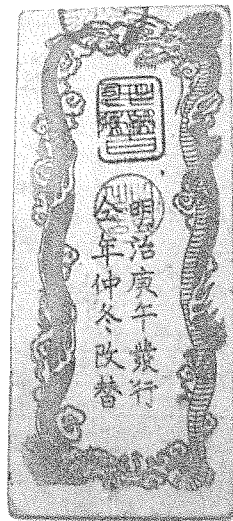 明治庚午發行
仝年仲冬改替